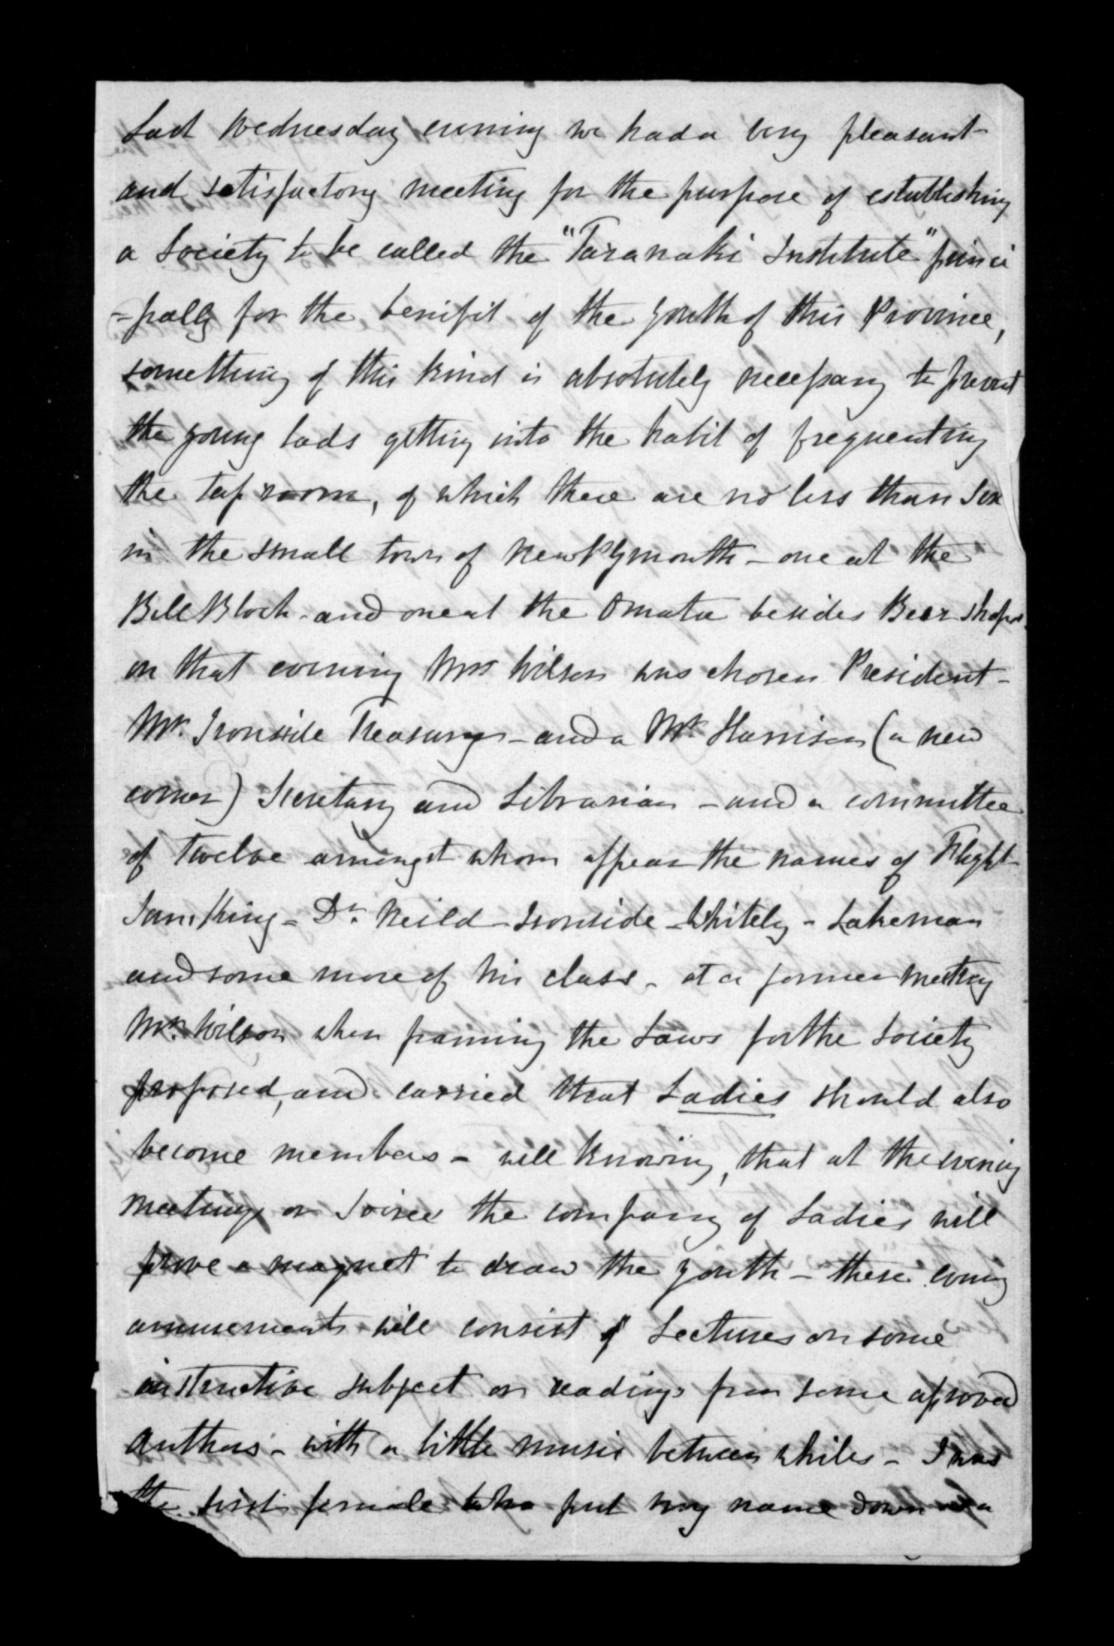 Last Wednesday evening we had a very pleasant
and satisfactory meeting for the purpose of establishing
a Society to be called the "Taranaki Institute" princi
-pally for the benifit of the youth of this Province,
something of this kind is absolutely necessary to prevent
the young lads getting into the habit of frequenting
the tap room, of which there are no less than Six
in the small town of New Plymouth - one at the
Bell Block - and one at the Omata besides Beer shops.
on that evening Mr Wilson was chosen President -
Mr. Ironside Treasurer - and a Mr. Harrison (a new
comer) Secretary and Librarian - and a committee
of twelve amongst whom appear the names of Flight
Sam King - Dr. Neild - Ironside - Whitely - Lakeman
and some more of his class - at a former meeting
Mr. Wilson when framing the Laws for the Society
proposed, and carried that Ladies should also
become members - well knowing, that at the evening
meetings or Soirees the company of Ladies will
prove a magnet to draw the youth - these evening
amusements will consist of Lectures on some
instructive subject or readings from some aproved
authors - with a little music between whiles - I was
the first female who put my name down as a